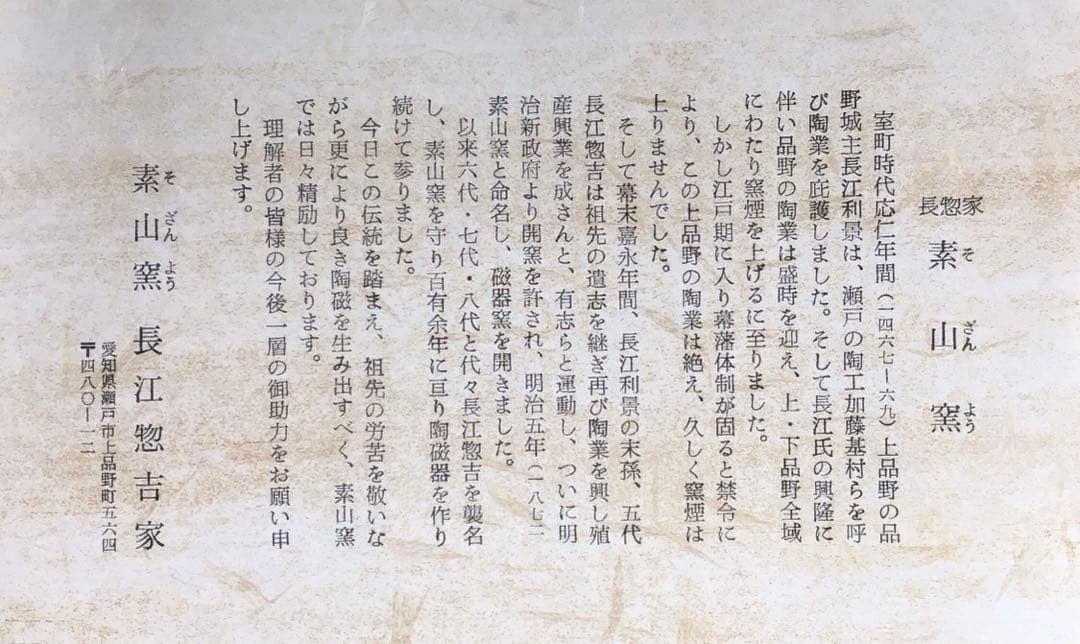 長惣家
素山窯
そ ざん よう
室町時代応仁年間(一四六七ー六九)上品野の品
野城主長江利景は、瀬戸の陶工加藤基村らを呼
び陶業を庇護しました。そして長江氏の興隆に
伴い品野の陶業は盛時を迎え、上・下品野全域
にわたり窯煙を上げるに至りました。
しかし江戸期に入り幕藩体制が固ると禁令に
より、この上品野の陶業は絶え、久しく窯煙は
上りませんでした。
そして幕末嘉永年間、長江利景の末孫、五代
長江惣吉は祖先の遺志を継ぎ再び陶業を興し殖
産興業を成さんと、有志らと運動し、ついに明
治新政府より開窯を許され、明治五年(一八七二
素山窯と命名し、磁器窯を開きました。
以来六代・七代・八代と代々長江惣吉を襲名
し、素山窯を守り百有余年に亘り陶磁器を作り
続けて参りました。
今日この伝統を踏まえ、祖先の労苦を敬いな
がら更により良き陶磁を生み出すべく、素山窯
では日々精励しております。
理解者の皆様の今後一層の御助力をお願い申
し上げます。
素山窯 長江惣吉家
そ ざん よう
愛知県瀬戸市上品野町五六四
〒四八〇ー一二